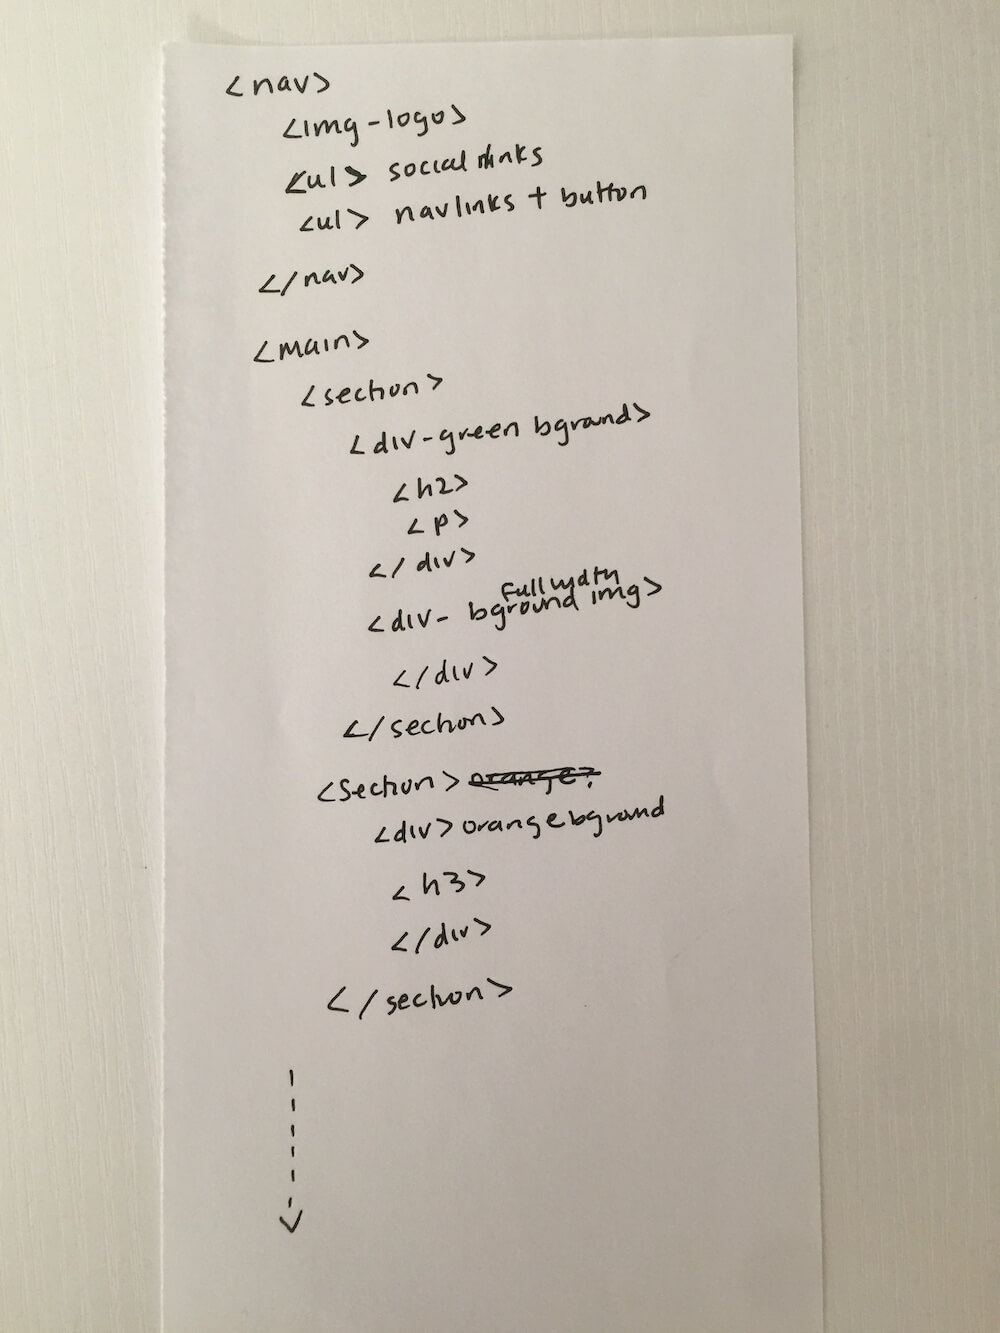 <nav>
<img-logo>
<ul> social links
<ul> navlinks + button
</nav>
<main>
<section>
<div-green bground>
<h2>
<p>
</div>
full width
<div- bground img>
</div>
</section>
<section> orange?
<div> orange bground
<h3>
</div>
</section>